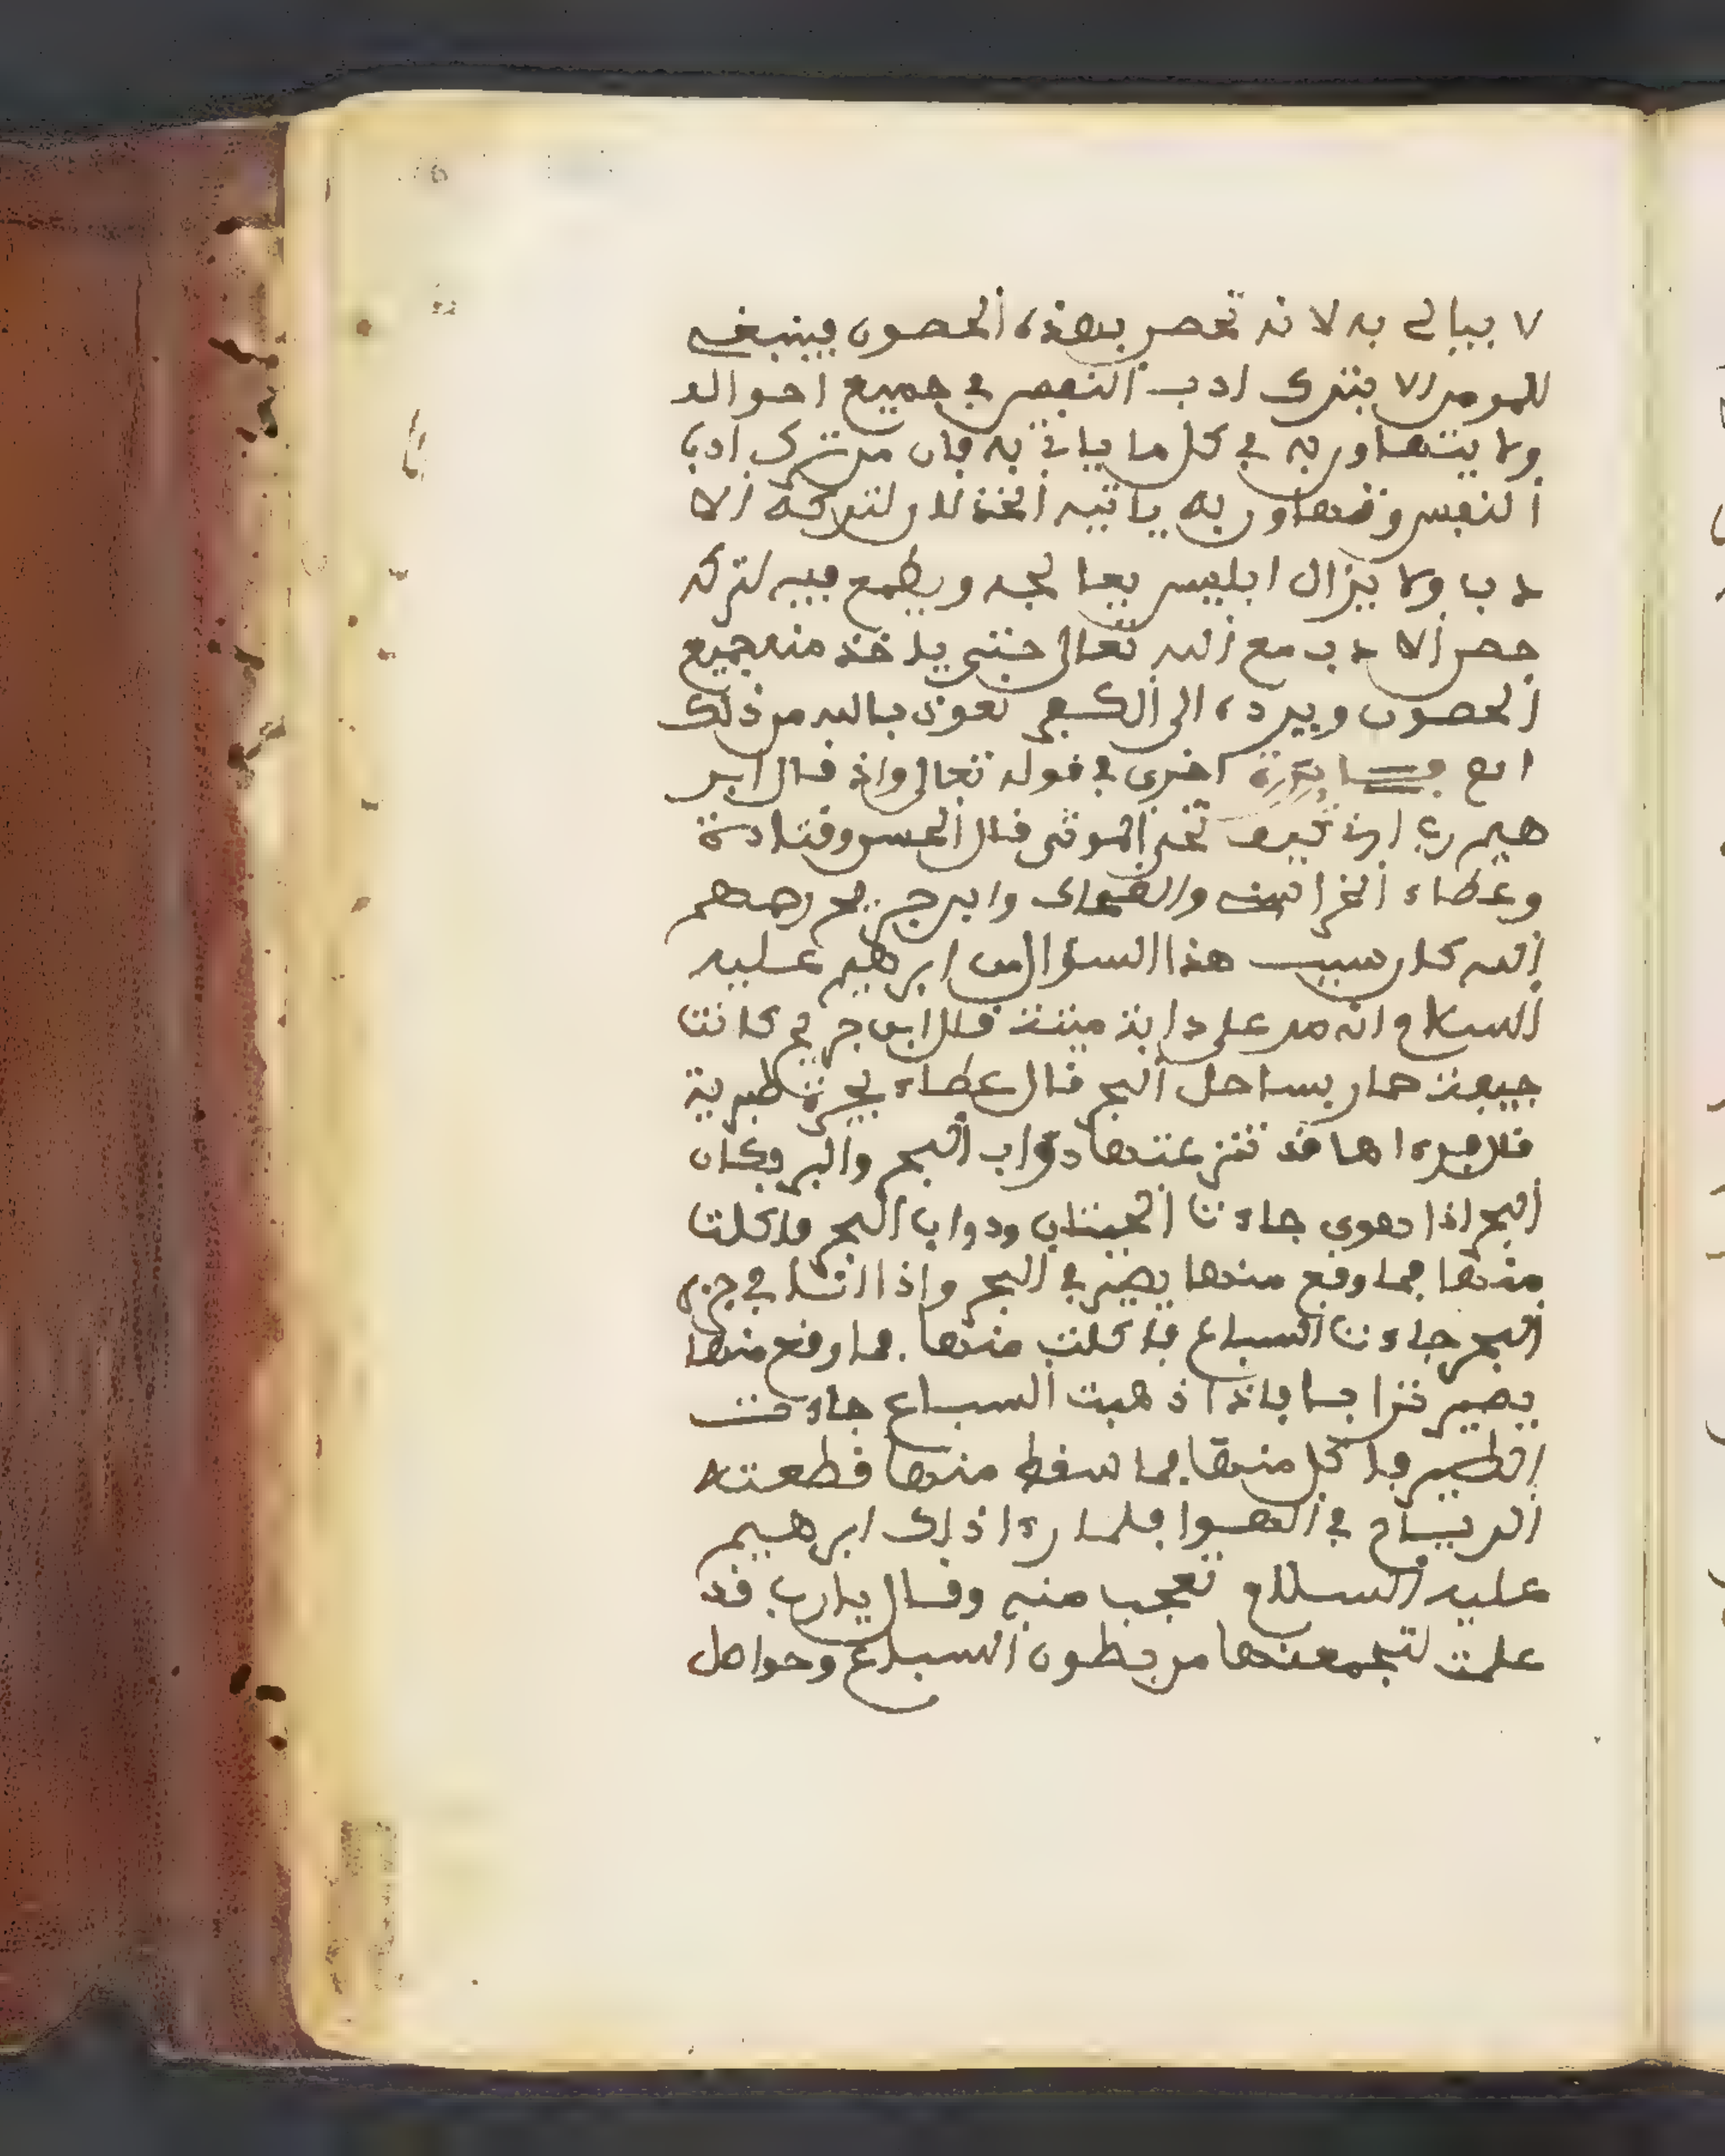 لا يبالي به لانه تحصن بهذه الحصون فينبغي
للمومن الا يترك ادب النفس في جميع احواله
ولا يتهاون به في كل ما ياتي به فان من ترك ادب
النفس وتهاون به ياتيه الخذلان لتركه الا
دب ولا يزال ابليس يعالجه ويطمع فيه لتركه
حصن الادب مع الله تعالى حتى ياخذ منه جميع
الحصون ويرده الى الكفر نعوذ بالله من ذلك
اخرى في قوله تعالى واذ قال ابر
هيم رب ارني كيف تحي الموتى قال الحسن وقتادة
وعطاء الخراسني والضحاك وابن جريج رحمهم
الله كان سبب هذا السؤال من ابرهيم عليه
السلام انه مر على دابة ميتة قال ابن جريج كانت
جيفة حمار بساحل البحر قال عطاء بحرة طبرية
قال فرءاها قد تنزعتها دواب البحر والبر فكان
البحر اذا جاءت الحيتان ودواب البحر فاكلت
منها فما وقع منها يصير في البحر واذا
البحر جاءت السباع فاكلت منها فما وقع منها
يصير ترابا فاذا ذهبت السباع جاءت
الطير فاكل منها فما سقط منها قطعته
الرياح في الهوا فلما رءا ذلك ابرهيم
عليه السلام تعجب منه وقال يارب قد
علمت لتجمعنها من بطون السباع وحواصل